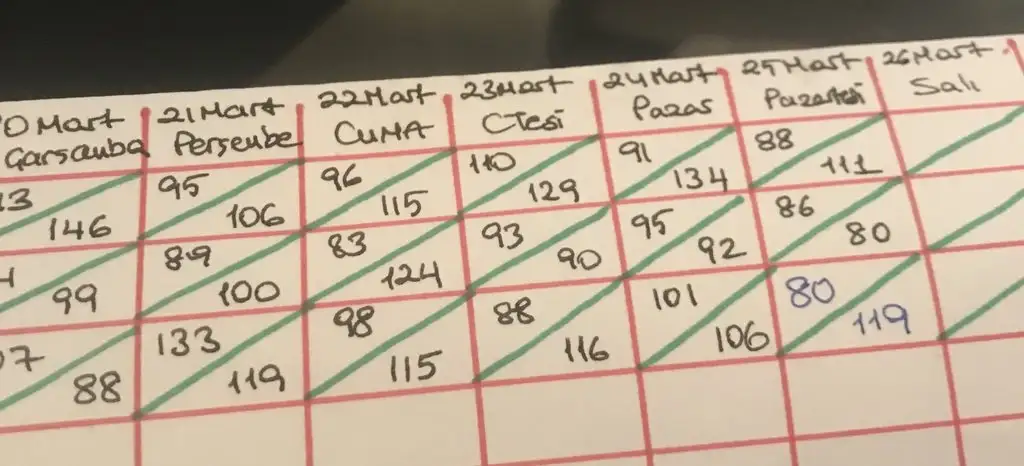 0 Mart 21 Mart 22 Mart 23 Mart 24 Mart 25 Mart 26 Mart
Garsauba Perseube CUMA CTesi Pazar Pazartesi Salı
13 95 96 110 91 88
146 106 115 129 134 111
89 83 93 95 86
99 100 124 90 92 80
07 133 98 88 101 80
88 119 115 116 106 119